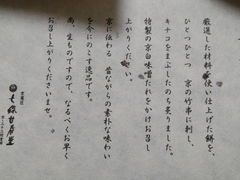 厳選した材料を使い仕上げた餅を、
ひとつひとつ 京の竹串に刺し、
キナコをまぶしたのち炙りました。
特製の京白味噌たれをかけお召し
上がりください。
京に伝わる 昔ながらの素朴な味わい
を今にのこす逸品です。
尚、生ものですので、なるべくお早く
お召し上がりくださいませ。